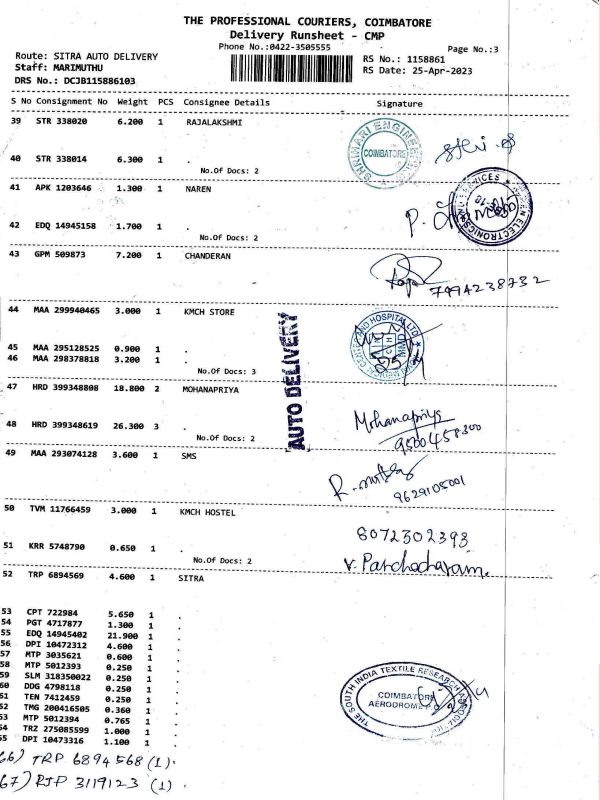 THE PROFESSIONAL COURIERS, COIMBATORE
Delivery Runsheet - CMP
Phone No.:0422-3505555
Page No.:3
Route: SITRA AUTO DELIVERY
RS No.: 1158861
Staff: MARIMUTHU
RS Date: 25-Apr-2023
DRS No.: DCJB115886103
S No Consignment No Weight PCS Consignee Details Signature
39 STR 338020 6.200 1 RAJALAKSHMI
40 STR 338014 6.300 1 .
No.Of Docs: 2
COIMBATORE
41 APK 1203646 1.300 1 NAREN
42 EDQ 14945158 1.700 1 .
No.Of Docs: 2
43 GPM 509873 7.200 1 CHANDERAN
7994238732
44 MAA 299940465 3.000 1 KMCH STORE
45 MAA 295128525 0.900 1 .
46 MAA 298378818 3.200 1 .
No.Of Docs: 3
AUTO DELIVERY
47 HRD 399348808 18.800 2 MOHANAPRIYA
Mohanapriya
48 HRD 399348619 26.300 3 .
9500458300
No.Of Docs: 2
49 MAA 293074128 3.600 1 SMS
9629105001
50 TVM 11766459 3.000 1 KMCH HOSTEL
8072302393
51 KRR 5748790 0.650 1 .
No.Of Docs: 2
V. Parchacharam.
52 TRP 6894569 4.600 1 SITRA
53 CPT 722984 5.650 1 .
54 PGT 4717877 1.300 1 .
55 EDQ 14945402 21.900 1 .
56 DPI 10472312 4.600 1 .
57 MTP 3035621 0.600 1 .
58 MTP 5012393 0.250 1 .
59 SLM 318350022 0.250 1 .
60 DDG 4798118 0.250 1 .
61 TEN 7412459 0.250 1 .
62 TMG 200416505 0.360 1 .
63 MTP 5012394 0.765 1 .
64 TRZ 275085599 1.000 1 .
65 DPI 10473316 1.100 1 .
THE SOUTH INDIA TEXTILE RESEARCH
COIMBATORE
AERODROME P.O
66) TRP 6894568 (1).
67) RJP 3119123 (1).